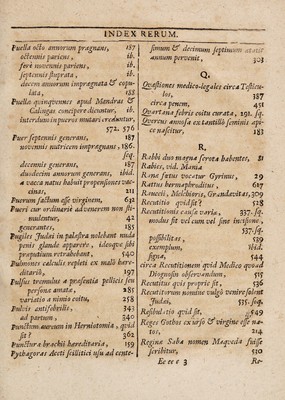 INDEX RERUM.
Puella octo annorum prægnans, 187
octennis pariens, ib.
ferè novennis pariens, ib.
septennis stuprata, ib.
decem annorum imprægnata & copu-
lata, 188
Puellæ quinquennes apud Mandras &
Calingas concipere dicuntur, ib.
interdum in pueros mutari creduntur,
572. 576
Puer septennis generans, 187
novennis nutricem imprægnans, 186.
seq.
decennis generans, 187
duodecim annorum generans, ibid.
a vacca natus habuit propensiones vac-
cinas, 211
Puerum factum esse virginem, 632
Pueri cur ordinariè advenerem non sti-
mulentur, 42
generantes, 185
Pugiles Judæi in palæstra nolebant nuda
penis glande apparere, ideoque sibi
præputium retrahebant, 540
Pulmones calculis repleti ex mali here-
ditariò, 197
Pulsus tremulus a præsentia pellicis seu
personæ amatæ, 285
variatio a nimio coitu, 258
Pulvis antifebrilis, 343
ad partum, 340
Punctum aureum in Herniotomia, quid
sit? 362
Punctura brachii hereditaria, 159
Pythagoræ Aecti scillitici usu ad cente-
simum & decimum septimum ætatis
annum pervenit, 303
Q.
Quæstiones medico-legales circa Testicu-
los, 387
circa penem, 451
Quartana febris coitu curata, 291. sq.
Quercus annosa extantillo seminis api-
ce nascitur, 183
R.
Rabbi duo magna scrota habentes, 81
Rabies, vid. Mania
Rana fætus vocatur Gyrinus, 29
Rattus hermaphroditus, 617
Ranceti, Melchioris, Grandavitas, 309
Recutitio quid sit? 528
Recutitionis causa varia, 337. sq.
modus sit vel cum vel sine incisione,
537. sq.
possibilitas, 539
exemplum, ibid.
signa, 544
circa Recutitionem quid Medico quoad
Diognosin observandum, 515
Recutitus quis propriè sit, 536
Recutitorum nomine vulgò veniebant
Judæi, 535. seq.
Resibulatio quid sit, 549
Reges Gothos ex urso & virgine esse na-
tos, 214
Regina Saba nomen Maqueda fuisse
scribitur, 510
Ee ee e 3 Re-